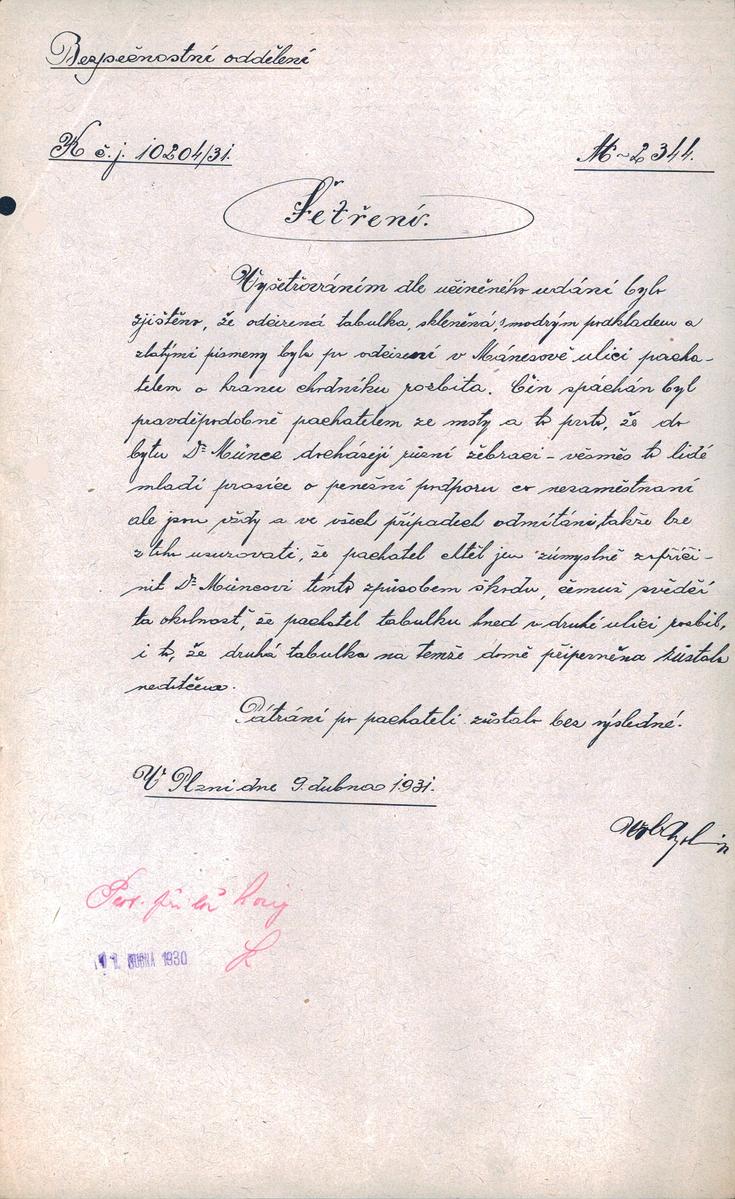 Bezpečnostní oddělení
K č.j. 10204/31.
M-2344.
Šetření.
Vyšetřováním dle učiněného udání bylo
zjištěno, že odcizená tabulka, skleněná, s modrým podkladem a
zlatými písmeny byla po odcizení v Mánesově ulici pacha-
telem o hranu chodníku rozbita. Čin spáchán byl
pravděpodobně pachatelem ze msty a to proto, že do
bytu Dr Münce docházejí různí žebraci - věsměs to lidé
mladí prosíce o penešní podporu co nezaměstnaní
ale jsou vždy a ve všech případech odmítáni, takže lze
z toho usuzovati, že pachatel chtěl jen zúmyslně zapříči-
nit Dr Müncovi tímto způsobem škodu, čemuž svědčí
ta okolnost, že pachatel tabulku hned v druhé ulici rozbil,
i to, že druhá tabulka na temže domě připevněna zůstala
nedtčena.
Pátrání po pachateli zůstalo bez výsledné.
V Plzni dne 9. dubna 1931.
DUBNA 1930